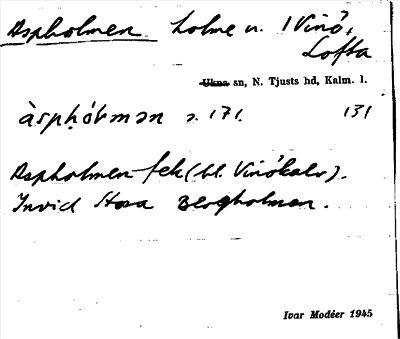 Aspholmen. holme n. I Vinö,
Lofta
Ukna sn, N. Tjusts hd, Kalm. l.
àspḥólmən s. 171. 131
Aspholmen fek (bl. Vinökalv).
Invid Stora Bergholmen.
Ivar Modéer 1945